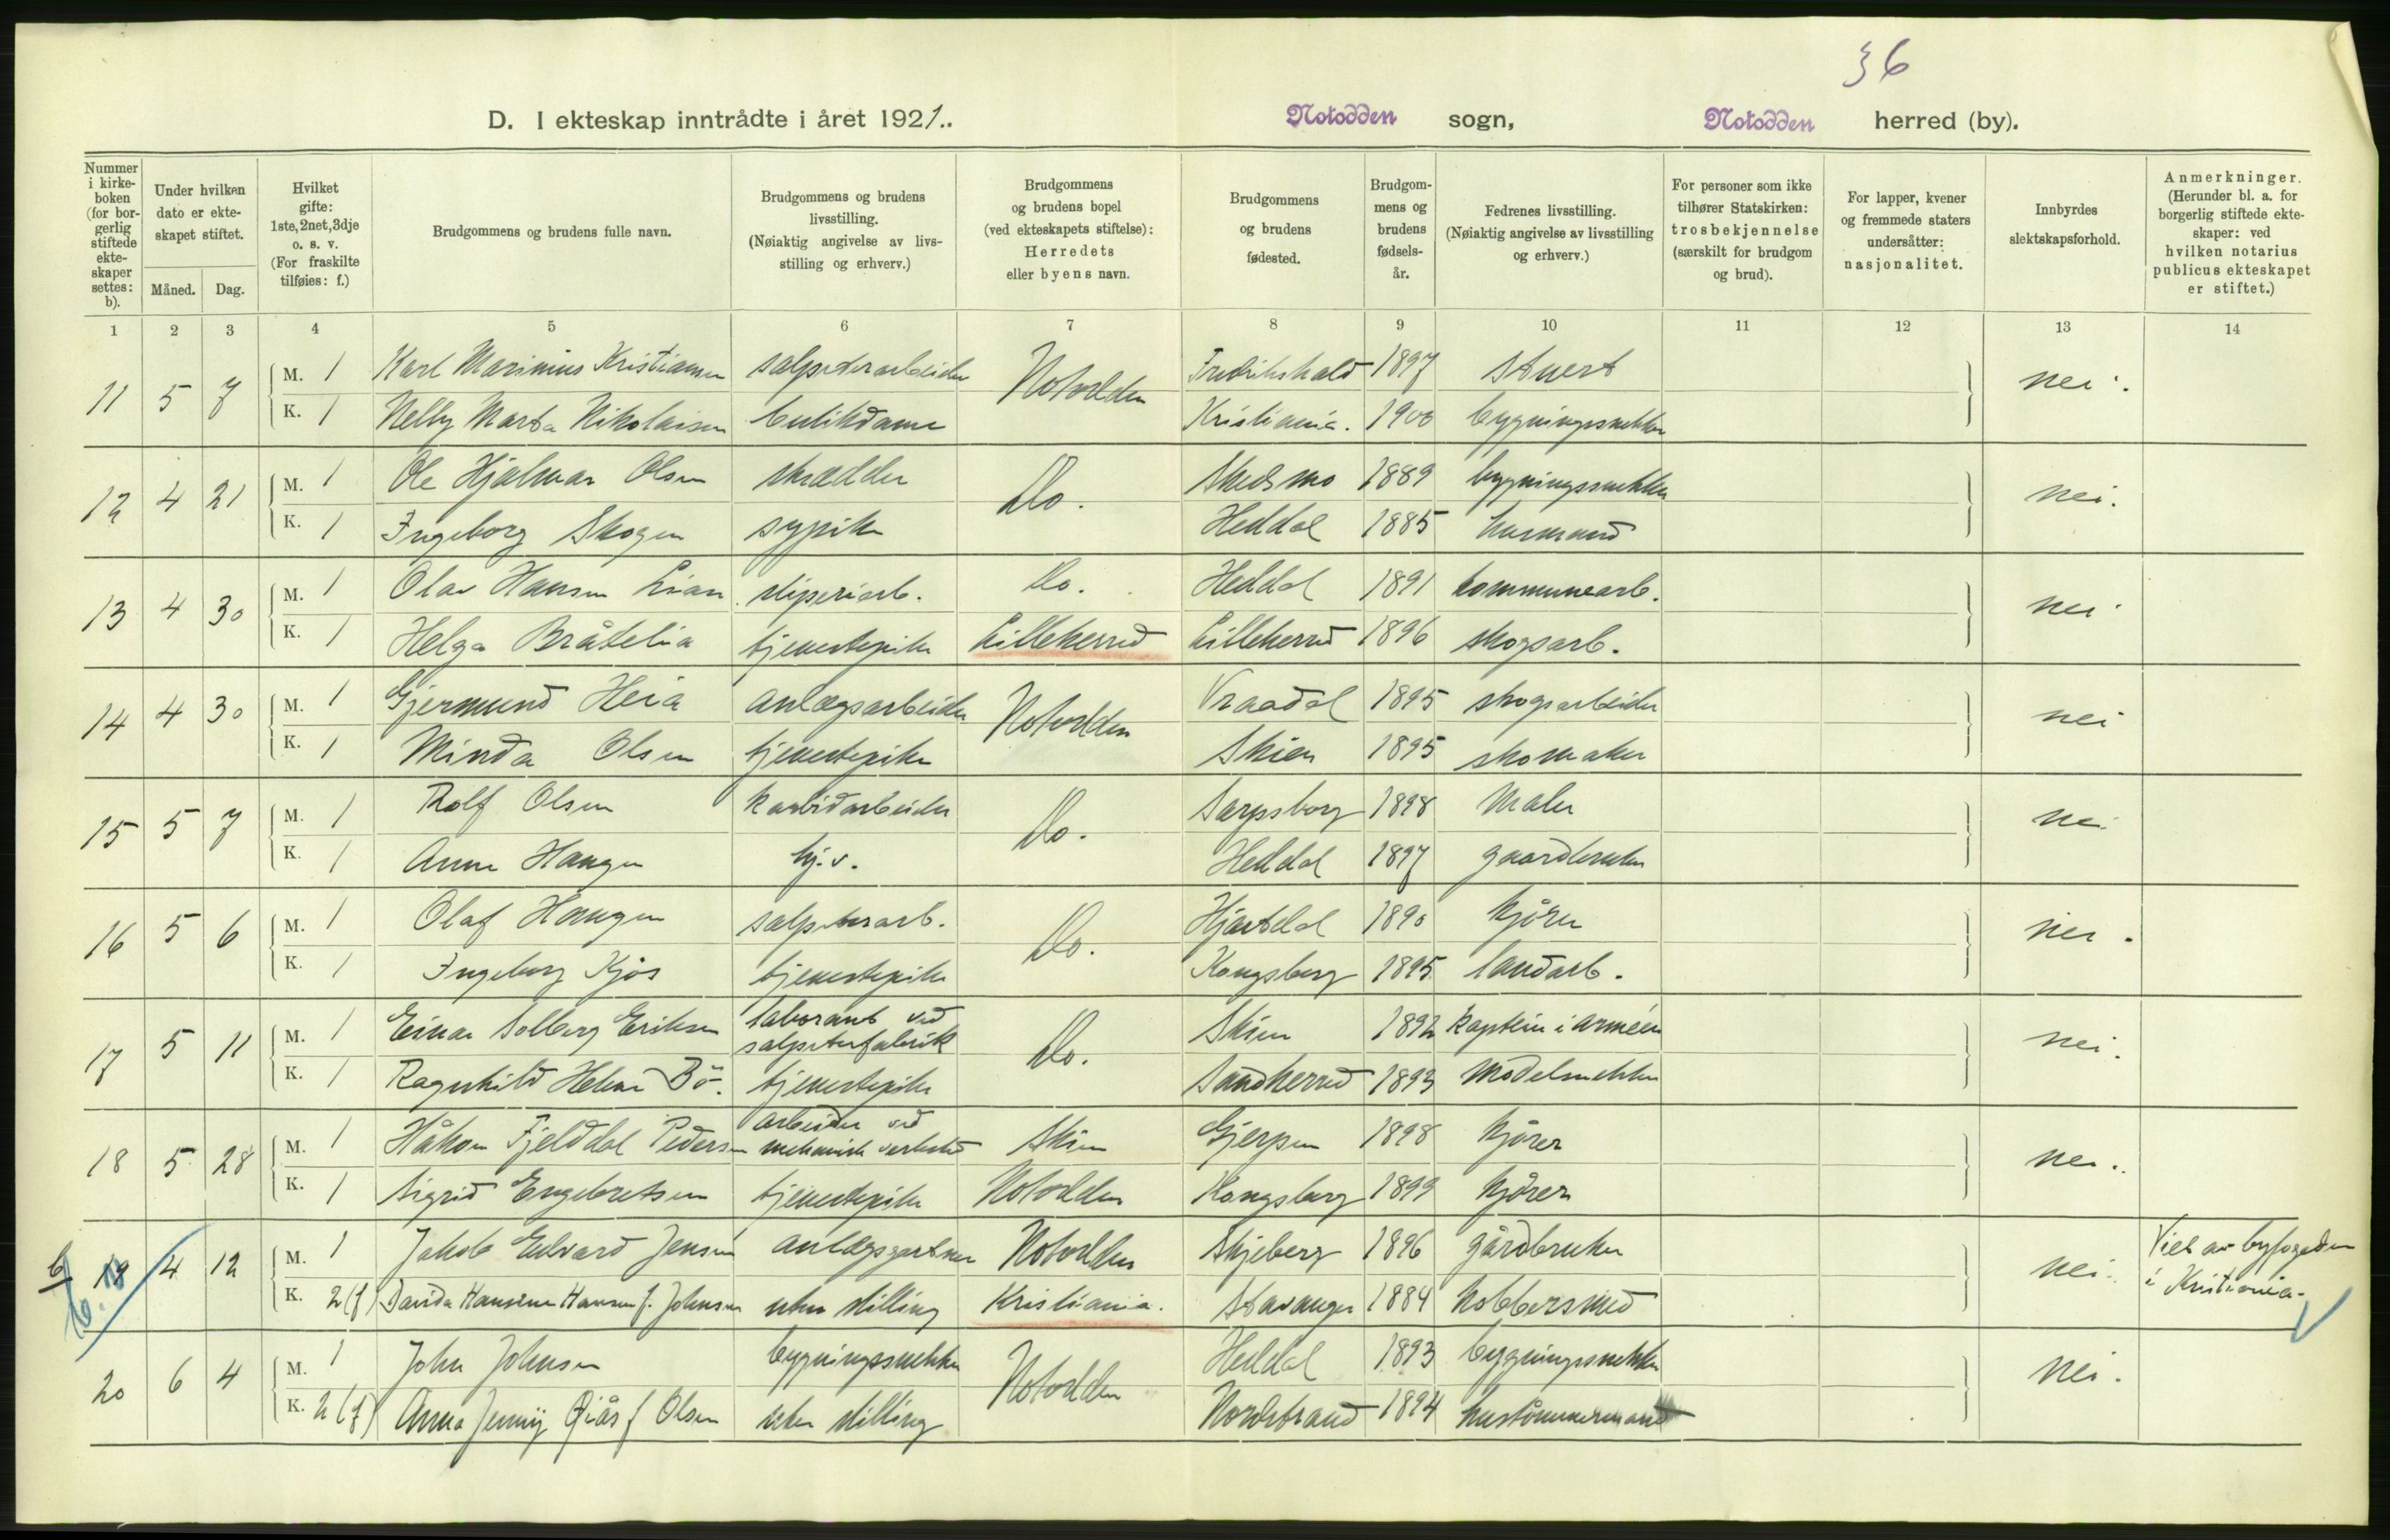 36
D. I ekteskap inntrådte i året 1921.. Notodden sogn, Notodden herred (by).
Nummer i kirke- boken (for bor- gerlig stiftede ekte- skaper settes: b).
Under hvilken dato er ekte- skapet stiftet.
Måned. Dag.
Hvilket gifte: 1ste, 2net, 3dje o. s. v. (For fraskilte tilføies: f.)
Brudgommens og brudens fulle navn.
Brudgommens og brudens livsstilling. (Nøiaktig angivelse av livs- stilling og erhverv.)
Brudgommens og brudens bopel (ved ekteskapets stiftelse): Herredets eller byens navn.
Brudgommens og brudens fødested.
Brudgom- mens og brudens fødsels- år.
Fedrenes livsstilling. (Nøiaktig angivelse av livsstilling og erhverv.)
For personer som ikke tilhører Statskirken: trosbekjennelse (særskilt for brudgom og brud).
For lapper, kvener og fremmede staters undersåtter: nasjonalitet.
Innbyrdes slektskapsforhold.
Anmerkninger. (Herunder bl. a. for borgerlig stiftede ekte- skaper: ved hvilken notarius publicus ekteskapet er stiftet.)
1 2 3 4 5 6 7 8 9 10 11 12 13 14
11 5 7 M. 1 Karl Marinius Kristiansen salpeterarbeider Notodden Fredrikshald 1897 stuert nei.
K. 1 Nelly Marta Nikolaisen butikdame Kristiania. 1900 bygningssnekker
12 4 21 M. 1 Ole Hjalmar Olsen skrædder Do. Skedsmo 1889 bygningssnekker nei.
K. 1 Ingeborg Skogen sypike Heddal 1885 husmand
13 4 30 M. 1 Olav Hansen Lian sliperiarb. Do. Heddal 1891 kommunearb. nei
K. 1 Helga Bråtelia tjenestepike Lilleherred Lilleherred 1896 skogsarb.
14 4 30 M. 1 Gjermund Heia anlægsarbeider Notodden Vraadal 1895 skogsarbeider nei
K. 1 Minda Olsen tjenestepike Skien 1895 skomaker
15 5 7 M. 1 Rolf Olsen karbidarbeider Do. Sarpsborg 1898 Maler nei
K. 1 Anne Haugen hj. v. Heddal 1897 gaardbruker
16 5 6 M. 1 Olaf Haugen salpeterarb. Do. Hjartdal 1890 kjører nei.
K. 1 Ingeborg Kjös tjenestepike Kongsberg 1895 landarb.
17 5 11 M. 1 Einar Solberg Eriksen laborant ved salpeterfabrik Do. Skien 1892 kaptein i armeen nei.
K. 1 Ragnhild Helene Bö. tjenestepike Sandherred 1893 Modelsnekker
18 5 28 M. 1 Håkon Fjelddal Pedersen arbeider ved mekanisk verksted Skien Gjerpen 1898 kjører nei.
K. 1 Sigrid Engebretsen tjenestepike Notodden Kongsberg 1899 kjører
b 19 4 12 M. 1 Jakob Edvard Jensen anlægsgartner Notodden Skjeberg 1896 gårdbruker nei. Viet av byfogeden
K. 2 (f) Davida Hansine Hansen f. Johnsen uten stilling Kristiania. Stavanger 1884 kobbersmed i Kristiania.
20 6 4 M. 1 John Johnsen bygningssnekker Notodden Heddal 1893 bygningssnekker nei.
K. 2 (f) Anna Jenny f Olsen uten stilling Nordstrand 1894 hustömmermand